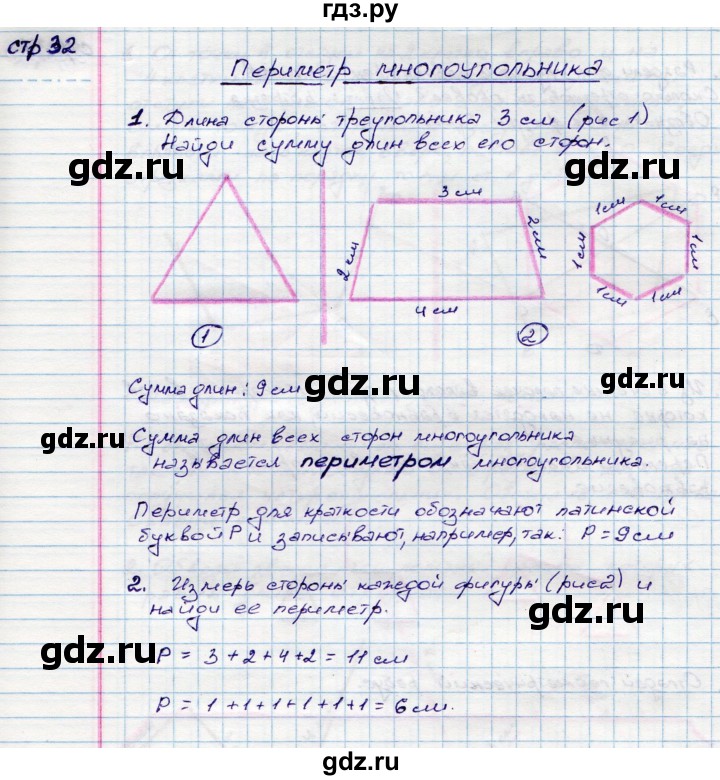 гдз.ру
стр 32
Периметр многоугольника
1. Длина стороны треугольника 3 см (рис 1)
Найди сумму длин всех его сторон.
gdz.ru gdz.ru
3 см
2 см
2 см
4 см
1 см
1 см
1 см
1 см
1 см
1 см
1
2
Сумма длин: 9 см
gdz.ru gdz.ru
Сумма длин всех сторон многоугольника
gdz.ru
называется периметром многоугольника.
Периметр для краткости обозначают латинской
буквой Р и записывают, например, так: Р = 9 см
gdz.ru
2. Измерь стороны каждой фигуры (рис2) и
найди ее периметр.
gdz.ru gdz.ru
Р = 3 + 2 + 4 + 2 = 11 см
Р = 1 + 1 + 1 + 1 + 1 + 1 = 6 см.
gdz.ru
gdz.ru